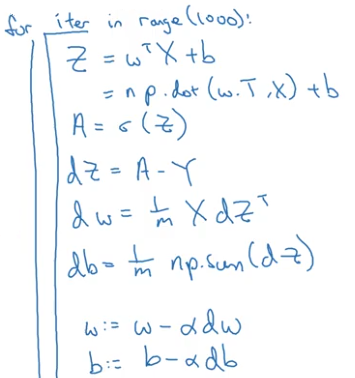 for iter in range(1000):
Z = wᵀX + b
= np.dot(w.T,X) + b
A = σ(Z)
dZ = A - Y
dw = 1/m X dZᵀ
db = 1/m np.sum(dZ)
w := w - αdw
b := b - αdb